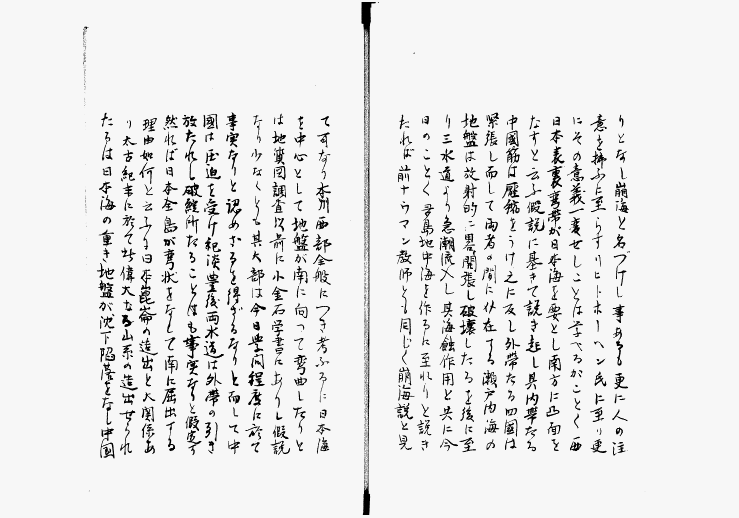 りとなし崩海と名づけし事あるも更に人の注
意を掃ふに至らすリヒトホーヘン氏に至り更
にその意義一変せしことは学べるがごとく西
日本表裏彎帯が日本海を要とし南方に凸面を
なすと云ふ假説に基きて説き起し其内帯たる
中國筋は壓縮をうけ之に反し外帯たる四國は
緊張し而して両者の間に介在する瀬戸内海の
地盤は放射的に畧開張し破壊したるを後に至
り三水道より急潮流入し其海蝕作用と共に今
日のごとく多島地中海を作るに至れりと説き
たれば前ナウマン教師とも同じく崩海説と見
て可なり本別西部全般につき考ふるに日本海
を中心として地盤が南に向って彎曲したりと
は地質図調査以前に小金石学書にありし假説
なり少なくとも其大部は今日学問程度に於て
事実なりと認めざるを得ざるなりと而して中
國は圧迫を受け紀淡豊後両水道は外帯の引き
放たれし破綻所たることはも事実なりと假定す
然れば日本全島が彎状をなして南に屈出する
理由如何と云ふに日本崑崙の造出と大関係あ
り太古紀末に於て此偉大なる山系の造出せられ
たるは日本海の重き地盤が沈下陥落をなし中國